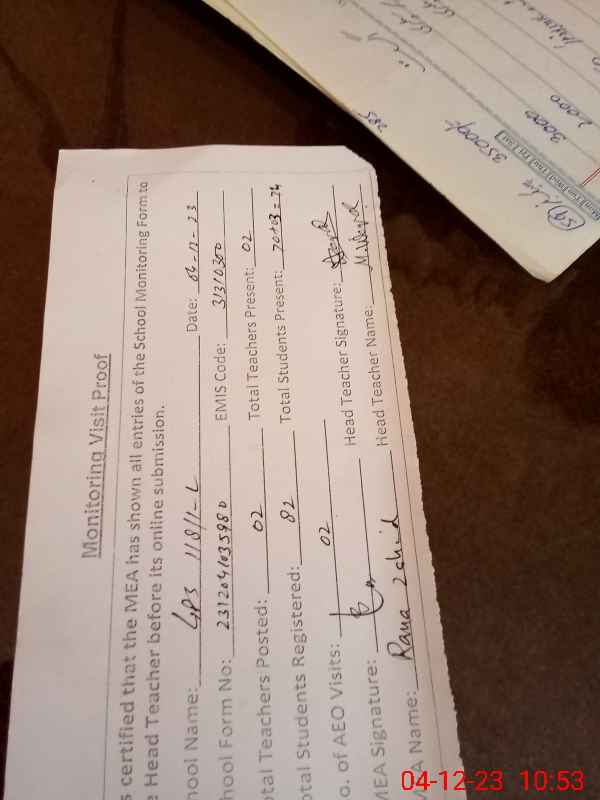 Monitoring Visit Proof
s certified that the MEA has shown all entries of the School Monitoring Form to
e Head Teacher before its online submission.
hool Name: GPS 118/11-L Date: 04-12-23
hool Form No: 2312041035980 EMIS Code: 31310300
otal Teachers Posted: 02 Total Teachers Present: 02
otal Students Registered: 82 Total Students Present: 70+03=
o. of AEO Visits: 02 Head Teacher Signature:
MEA Signature: Head Teacher Name:
MEA Name: Rana
35000/-
3000
2000
285
04-12-23 10:53